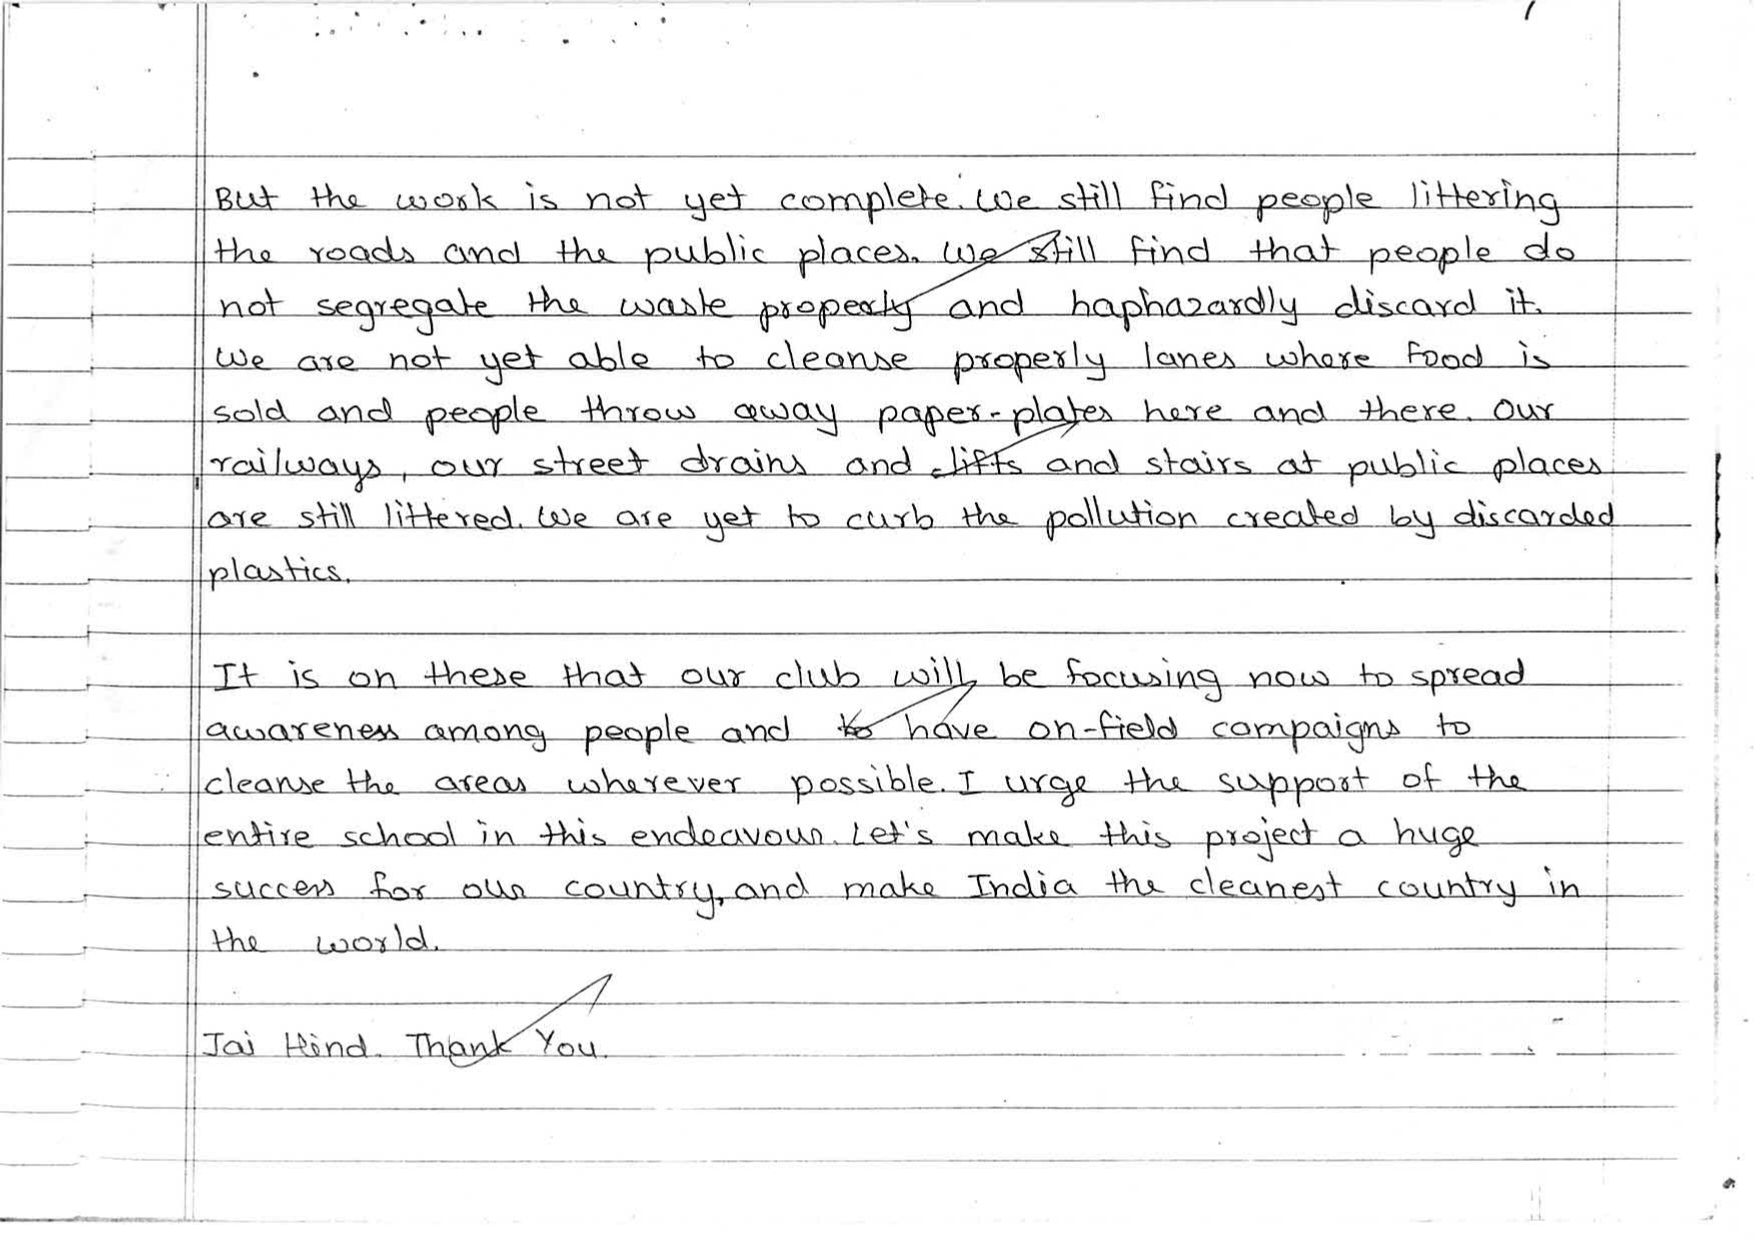 But the work is not yet complete. We still find people littering
the roads and the public places. We still find that people do
not segregate the waste properly and haphazardly discard it.
We are not yet able to cleanse properly lanes where food is
sold and people throw away paper-plates here and there. Our
railways, our street drains and lifts and stairs at public places
are still littered. We are yet to curb the pollution created by discarded
plastics.
It is on these that our club will be focusing now to spread
awareness among people and to have on-field campaigns to
cleanse the areas wherever possible. I urge the support of the
entire school in this endeavour. Let's make this project a huge
success for our country, and make India the cleanest country in
the world.
Jai Hind. Thank You.